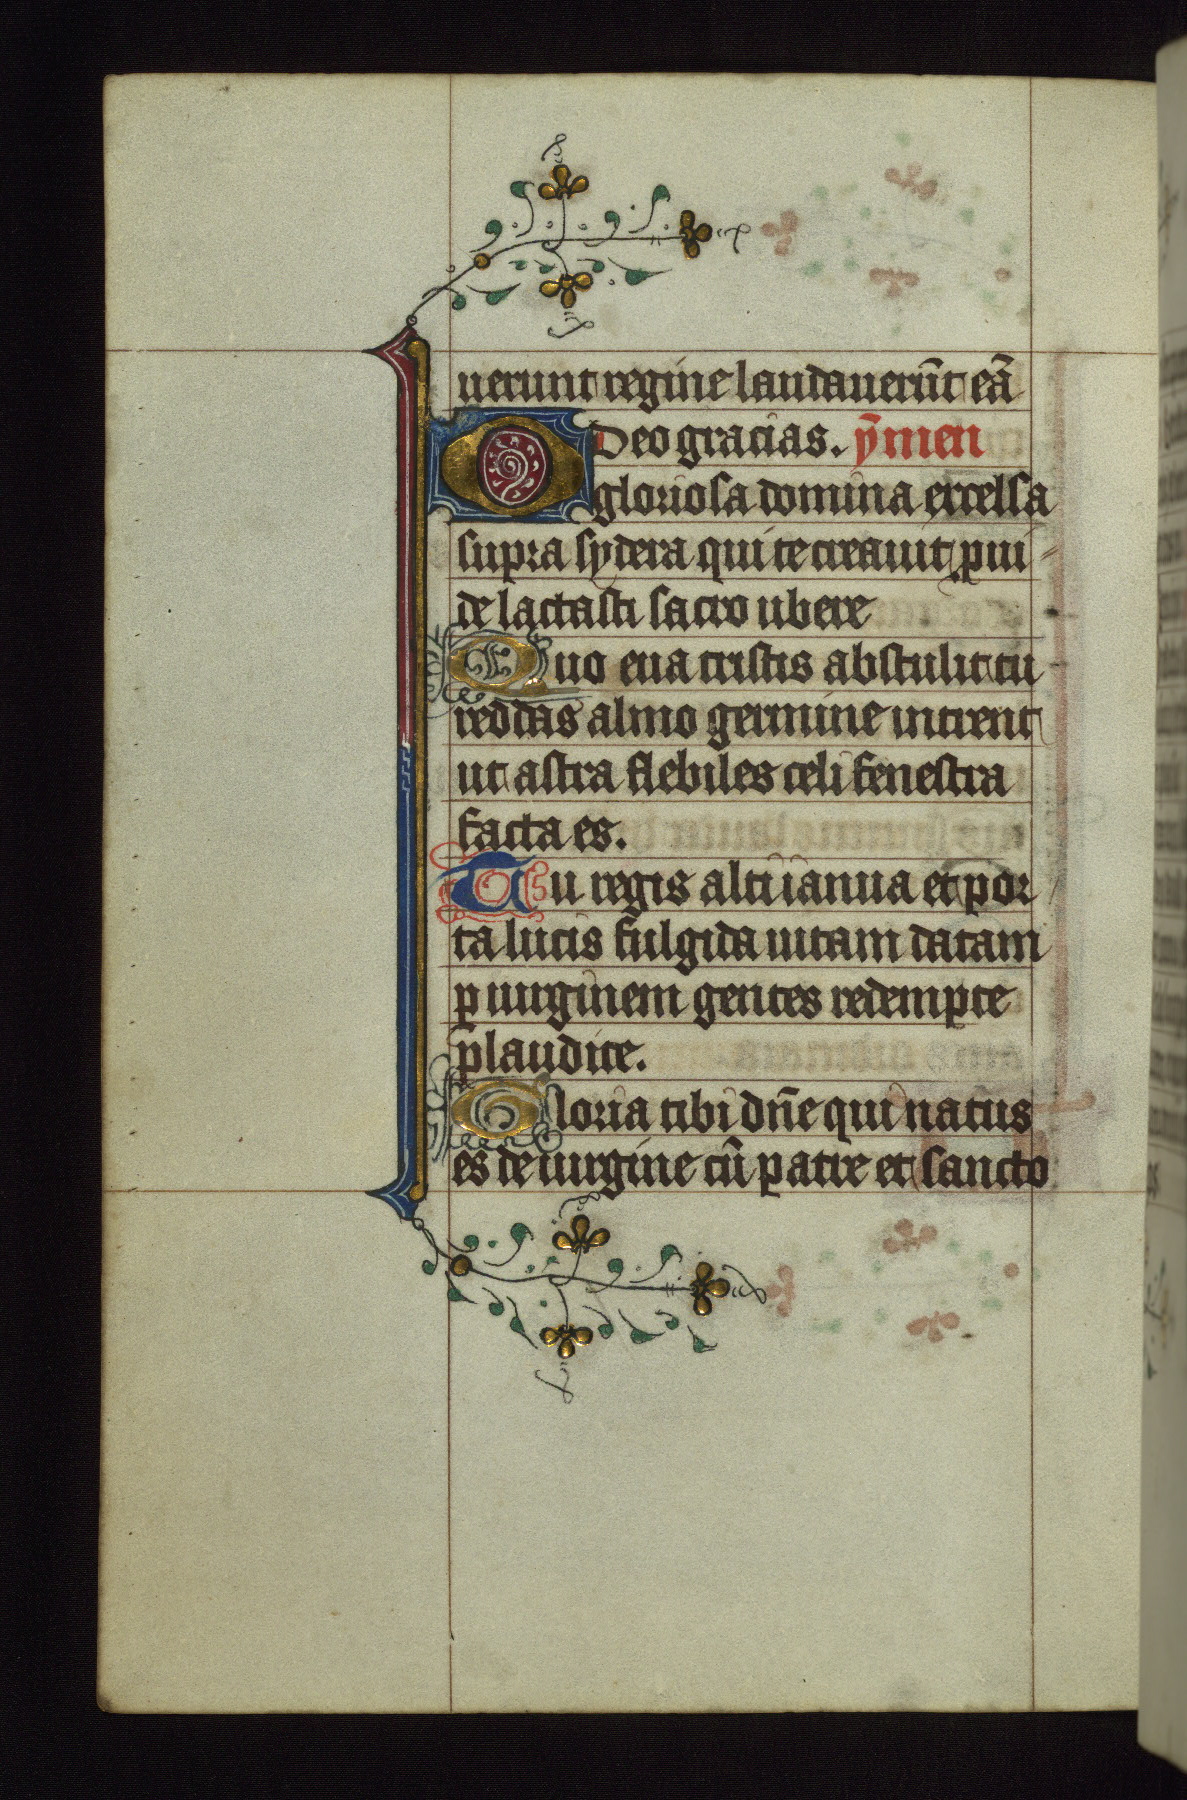 uerunt regine laudauerūt eā
Deo gracias. ȳmen
O gloriosa domina excelsa
supra sydera qui te creauit p̱ui
de lactasti sacro ubere
Quo eua tristis abstulit tu
reddas almo germine intrent
ut astra flebiles celi fenestra
facta es.
Tu regis alti ianua et por
ta lucis fulgida uitam datam
ꝑ uirginem gentes redempte
plaudite.
Gloria tibi dn̄e qui natus
es de uirgine cū patre et sancto